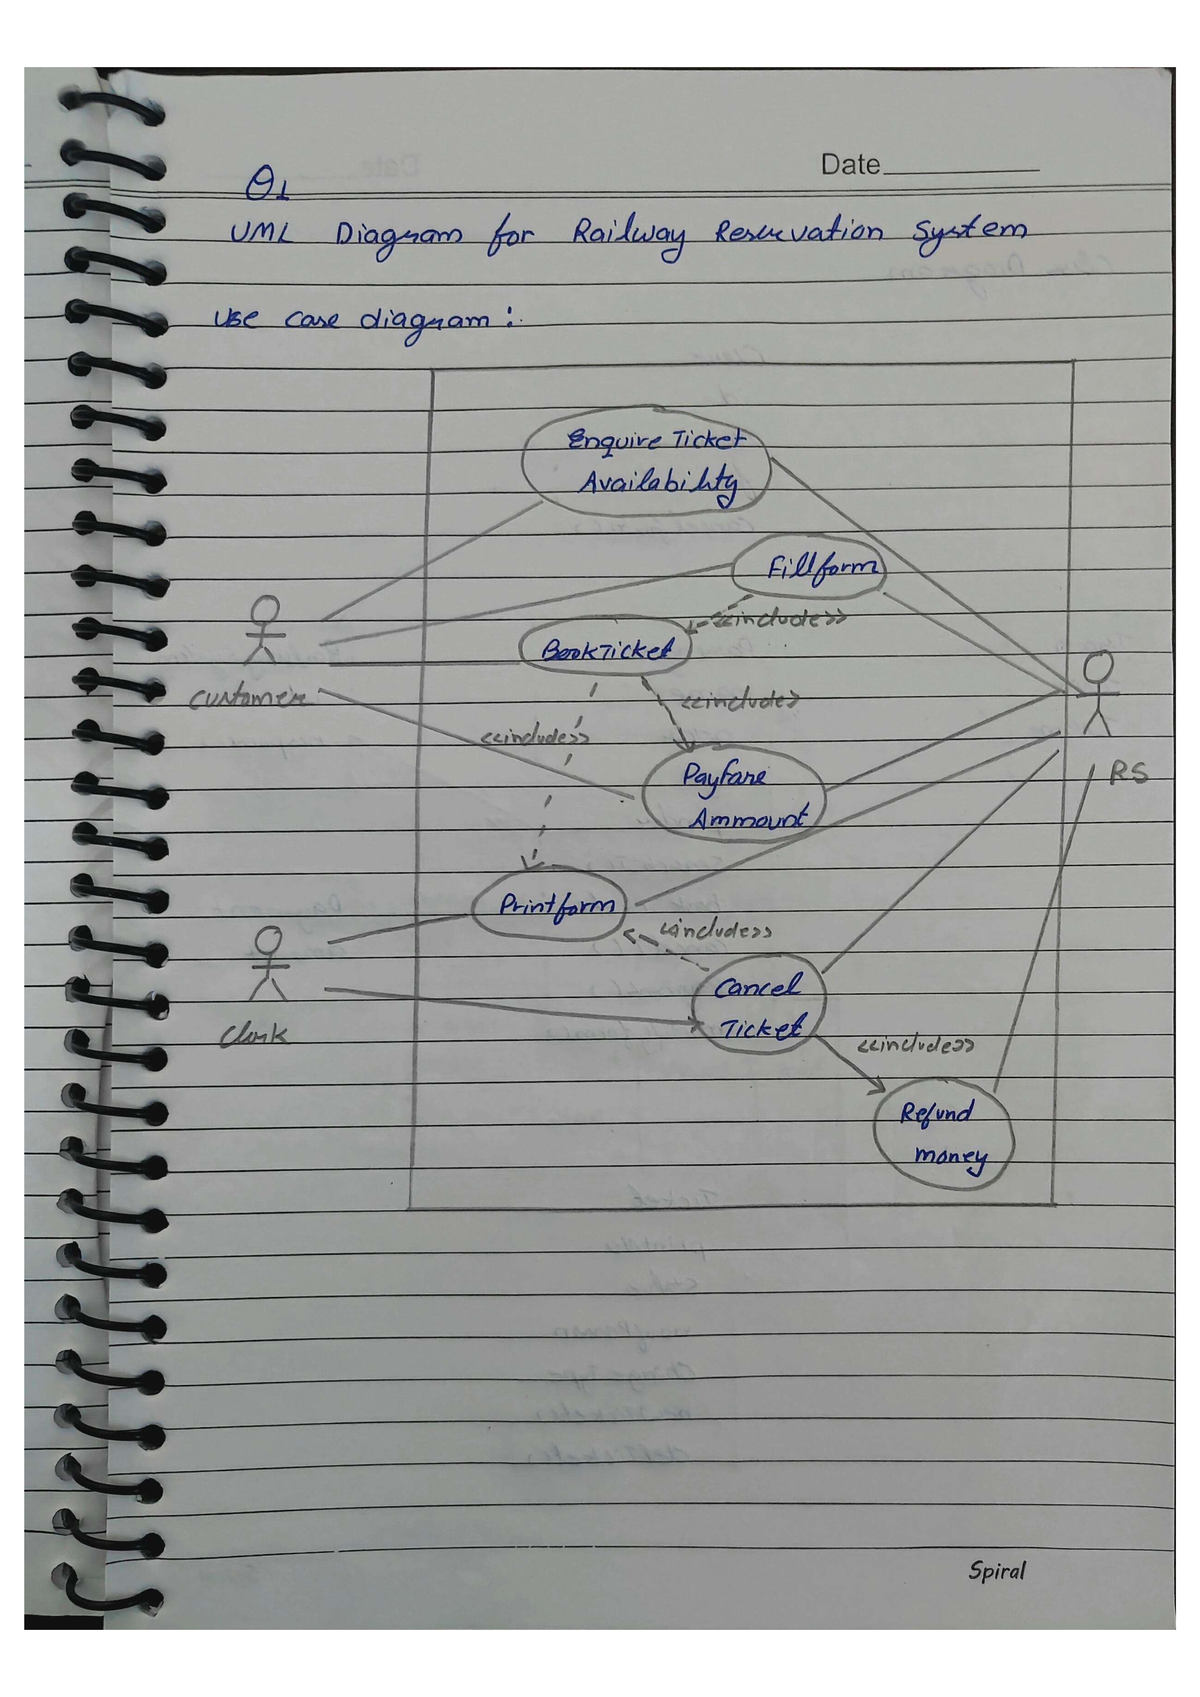 Date
Q1
UML Diagram for Railway Reservation System
Use case diagram :
Enquire Ticket
Availability
Fillform
<<include>>
BookTicket
customer
<<include>
<<include>>
Payfare
Ammount
RS
Printform
<<include>>
Cancel
Ticket
Clerk
<<include>>
Refund
money
Spiral